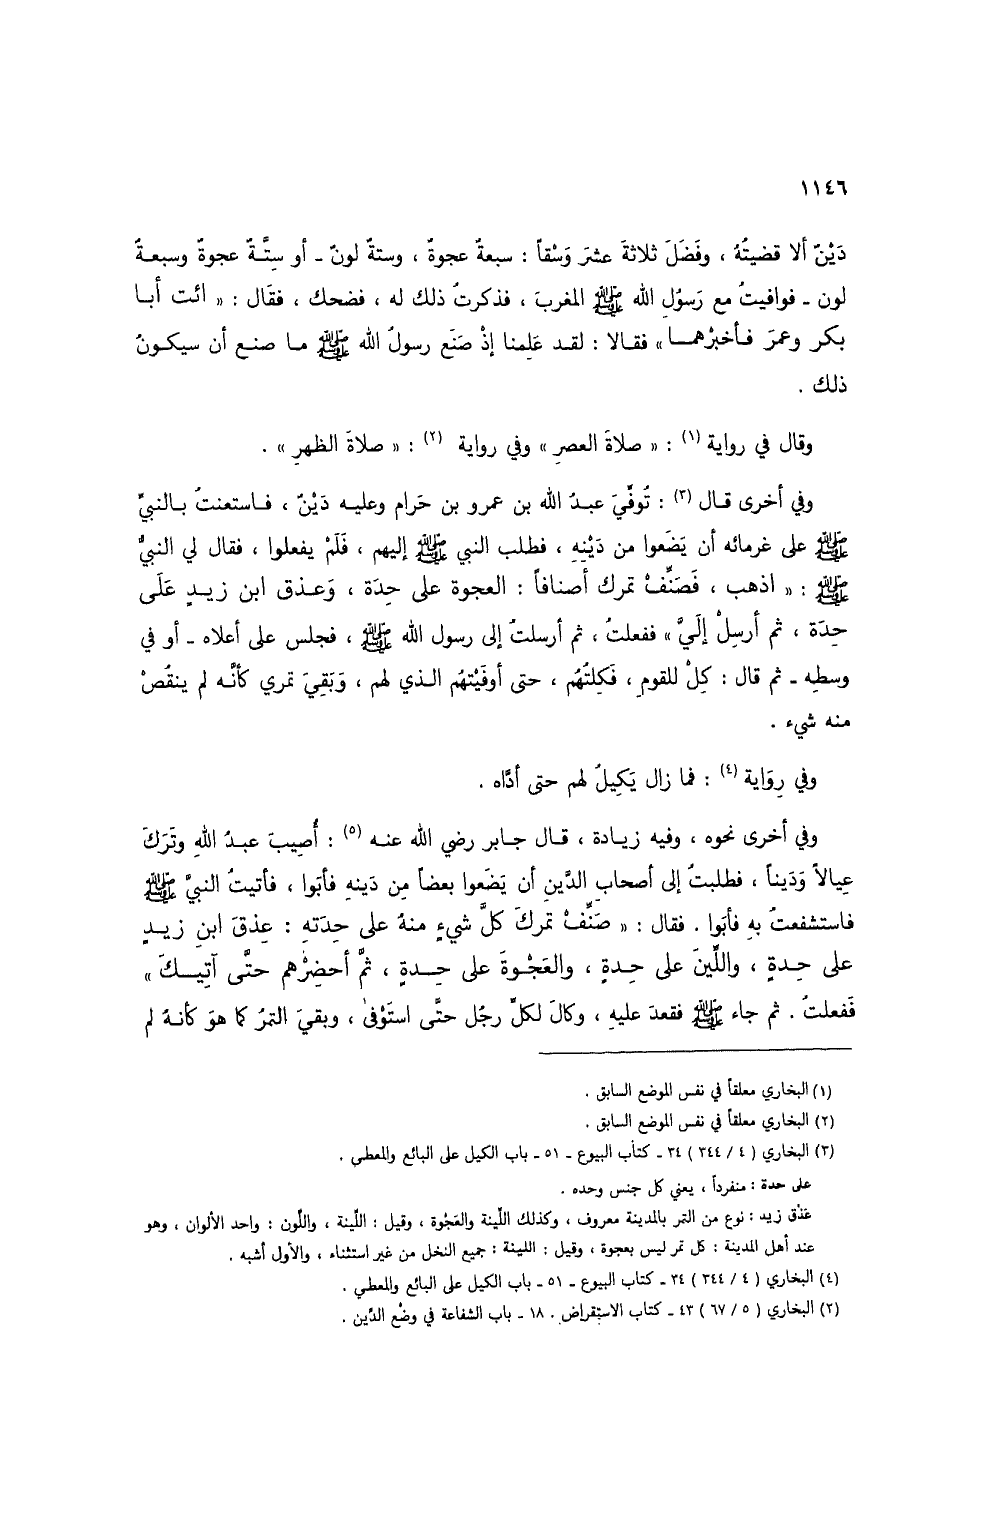 ١١٤٦
دَيْنٌ ألا قضيتُهُ ، وفَضَلَ ثلاثةَ عشرَ وَسْقاً : سبعةٌ عجوةٌ ، وستةٌ لونٌ ـ أو ستَّـةٌ عجوةٌ وسبعـةٌ
لون ـ فوافيتُ مع رَسولِ الله ﷺ المغربَ ، فذكرتُ ذلك له ، فضحك ، فقَال : « ائت أبـا
بكر وعمرَ فـأخبرْهمـا » فقـالا : لقـد عَلِمنا إذْ صَنَع رسولُ الله ﷺ مـا صنـع أن سيكـونُ
ذلك .
وقال في رواية (١) : « صلاةَ العصرِ » وفي رواية (٢) : « صلاةَ الظهرِ » .
وفي أخرى قـال (٣) : تُوفِّيَ عبـدُ الله بن عمرو بن حَرام وعليـه دَيْنٌ ، فـاستعنتُ بـالنبيِّ
ﷺ على غرمائه أن يَضَعوا من دَيْنِهِ ، فطلب النبي ﷺ إليهم ، فَلَمْ يفعلوا ، فقال لي النبيُّ
ﷺ : « اذهب ، فَصَنِّفْ تمرك أصنافاً : العجوة على حِدَة ، وَعـذق ابن زيـدٍ عَلَى
حِدَة ، ثم أرسِلْ إلَيَّ » ففعلتُ ، ثم أرسلتُ إلى رسول الله ﷺ ، فجلس على أعلاه ـ أو في
وسطِه ـ ثم قال : كِلْ للقومِ ، فَكِلتُهُم ، حتى أوفَيْتهُم الـذي لهم ، وَبَقِيَ تمري كأنَّـه لم ينقُصْ
منه شيء .
وفي رِوَاية (٤) : فما زال يَكِيلُ لهم حتى أدَّاه .
وفي أخرى نحوه ، وفيه زيـادة ، قـال جـابر رضي الله عنـه (٥) : أُصِيبَ عبـدُ اللهِ وتَرَكَ
عِيالاً وَدَيناً ، فطلبتُ إلى أصحاب الدَّينِ أن يَضَعوا بعضاً مِن دَينهِ فأبَوا ، فأتيتُ النبيَّ ﷺ
فاستشفعتُ بهِ فأبَوا . فقال : « صَنِّفْ تمركَ كلَّ شيءٍ منهُ على حِدَتهِ : عِذقَ ابنِ زيـدٍ
على حِـدةٍ ، واللِّينَ على حِدةٍ ، والعَجْـوةَ على حِـدةٍ ، ثمَّ أحضِرْهم حتَّى آتِيـكَ »
فَفعلتُ . ثم جاء ﷺ فقعدَ عليهِ ، وكالَ لكلِّ رجُل حتَّى استَوْفىٰ ، وبقيَ التمرُ كما هوَ كأنـهُ لم
(١) البخاري معلقاً في نفس الموضع السابق .
(٢) البخاري معلقاً في نفس الموضع السابق .
(٣) البخاري ( ٤ / ٣٤٤ ) ٣٤ ـ كتاب البيوع ـ ٥١ ـ باب الكيل على البائع والمعطي .
على حدة : منفرداً ، يعني كل جنس وحده .
عَذْق زيد : نوع من التمر بالمدينة معروف ، وكذلك اللِّينة والعَجْوة ، وقيل : اللِّينة ، واللَّون : واحد الألوان ، وهو
عند أهل المدينة : كل تمر ليس بعجوة ، وقيل : اللينة : جميع النخل من غير استثناء ، والأول أشبه .
(٤) البخاري ( ٤ / ٣٤٤ ) ٣٤ ـ كتاب البيوع ـ ٥١ ـ باب الكيل على البائع والمعطي .
(٢) البخاري ( ٥ / ٦٧ ) ٤٣ ـ كتاب الاستقراض . ١٨ ـ باب الشفاعة في وضْع الدَّين .